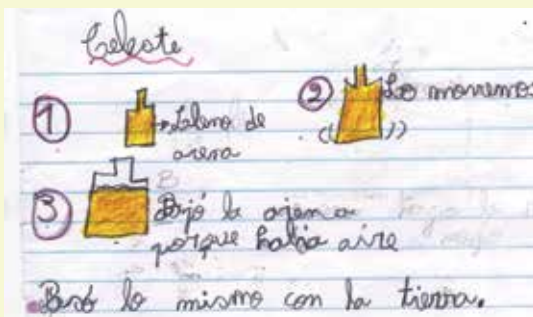 Celeste
1 →LLeno de
arena
2 Lo movemos
3 Bajó la arena
porque había aire
Pasó lo mismo con la tierra.